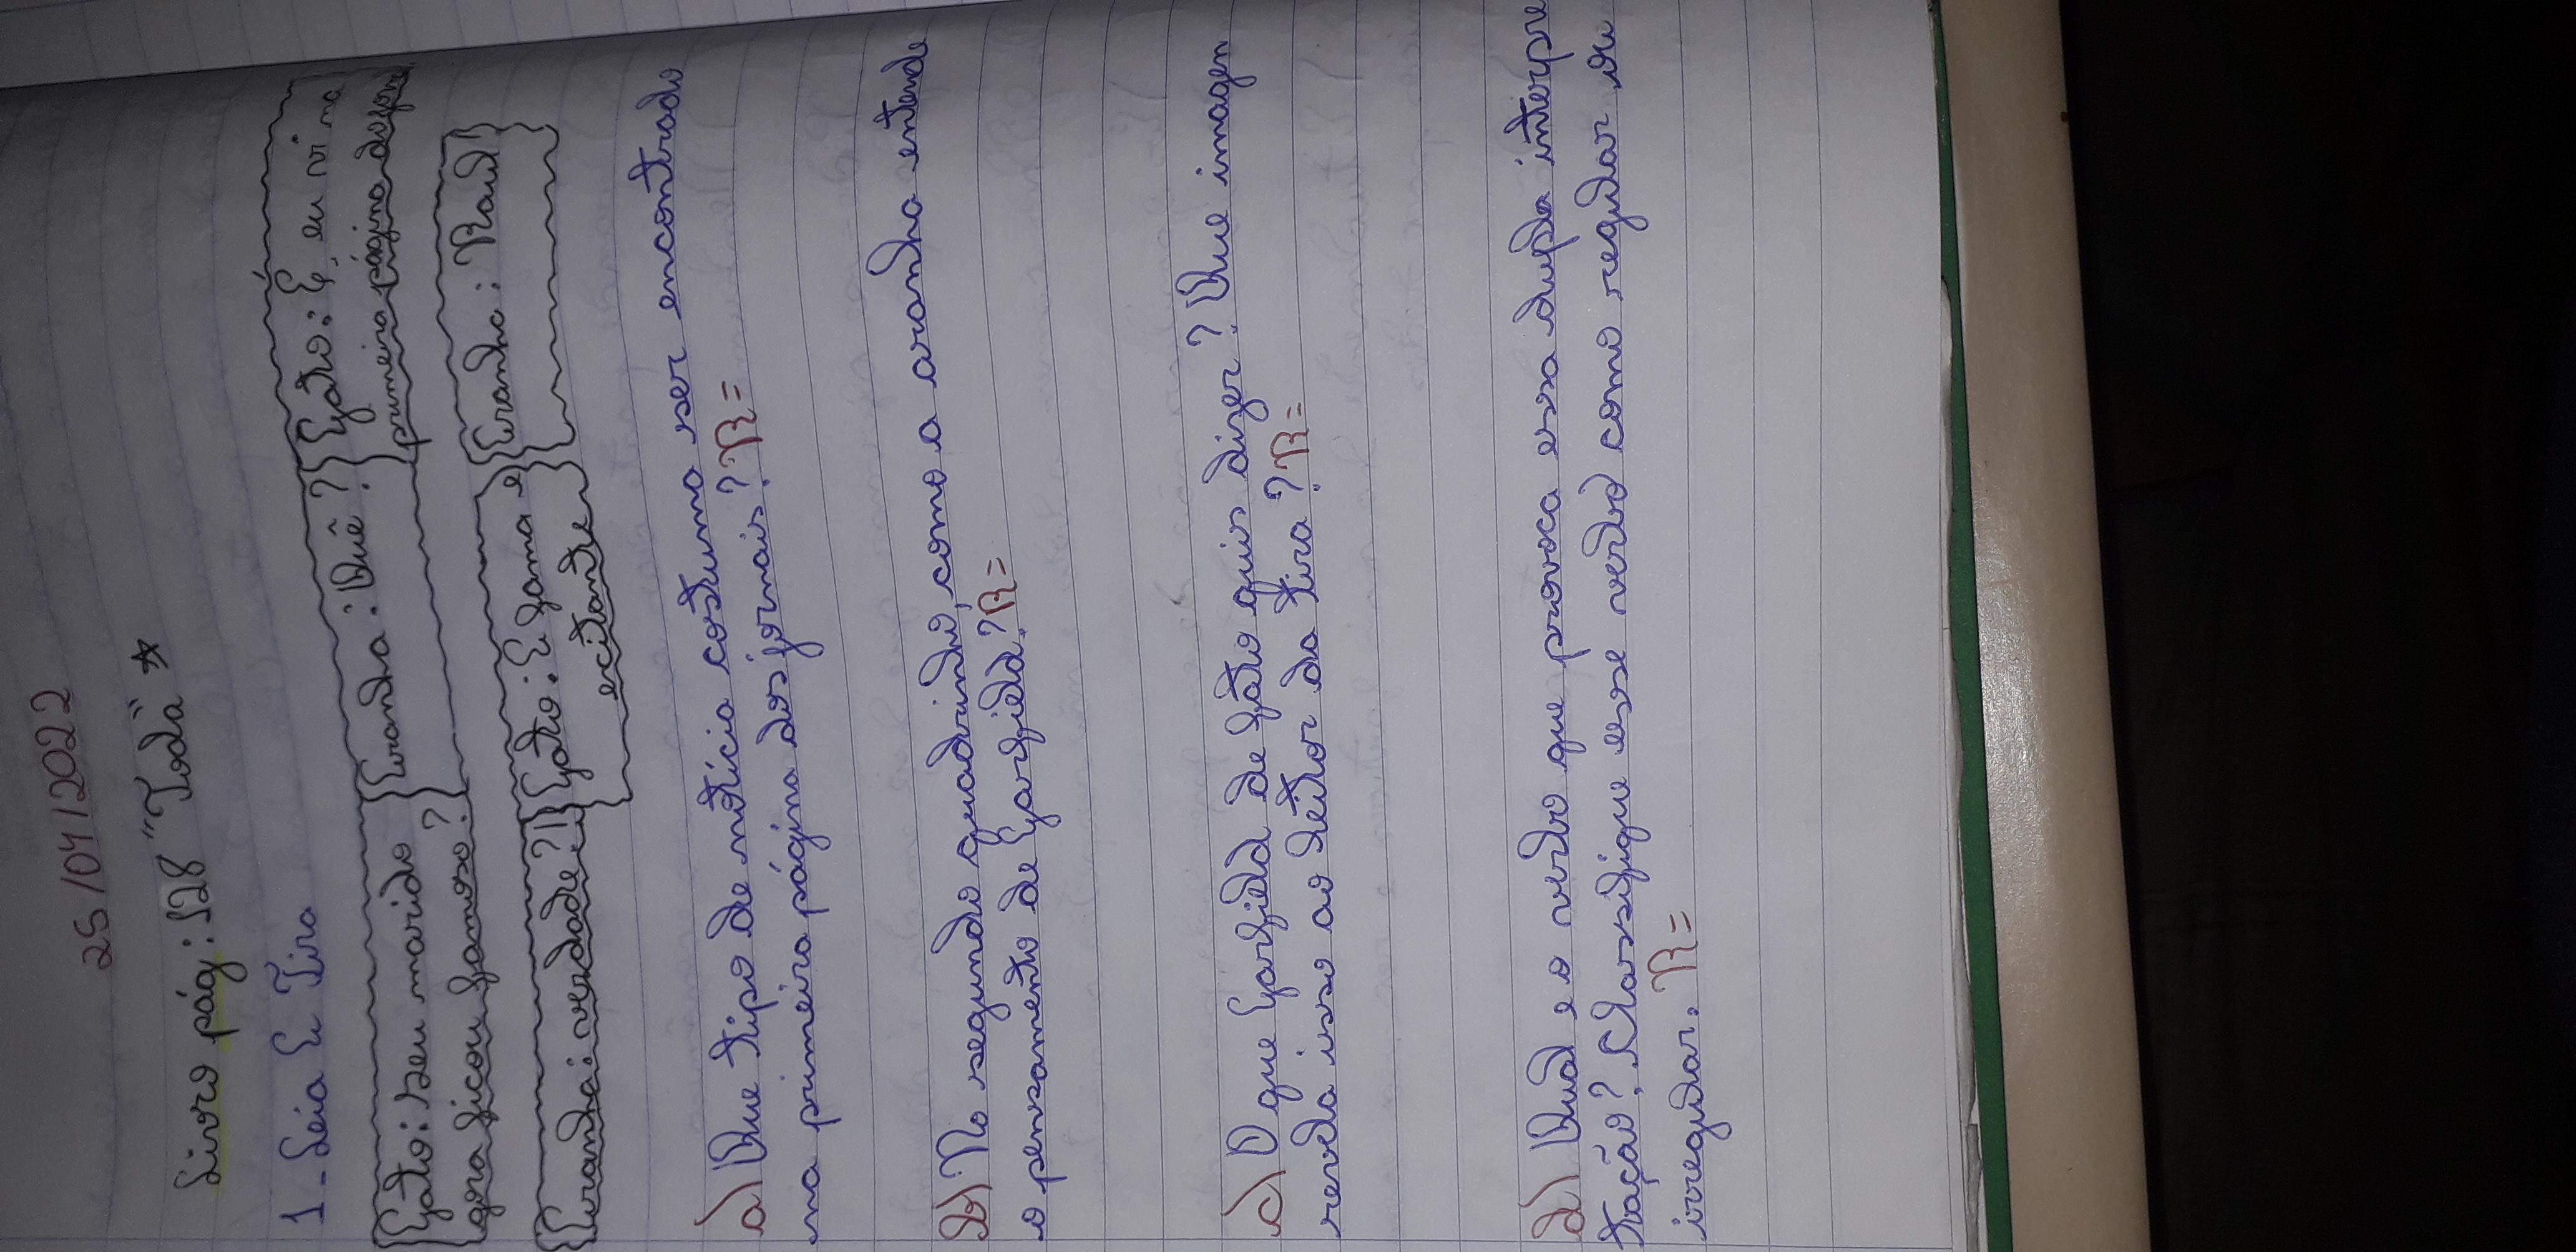 25/04/2022
Livro pág: 128 "Toda" ☆
1- Leia A Tira
Gato: seu marido
agora ficou famoso?
Aranha: Quê?
Gato: É, eu vi na
primeira página do jornal
Aranha: verdade?!
Gato: A fama é
excitante
Aranha: Raul!
a) Que tipo de notícia costuma ser encontrado
na primeira página dos jornais? R=
b) No segundo quadrinho, como a aranha entende
o pensamento de Garfield? R=
c) O que Garfield de fato quis dizer? Que imagen
revela isso ao leitor da tira? R=
d) Qual e o verbo que provoca essa dupla interpre
tação? Classifique esse verbo como regular ou
irregular. R=